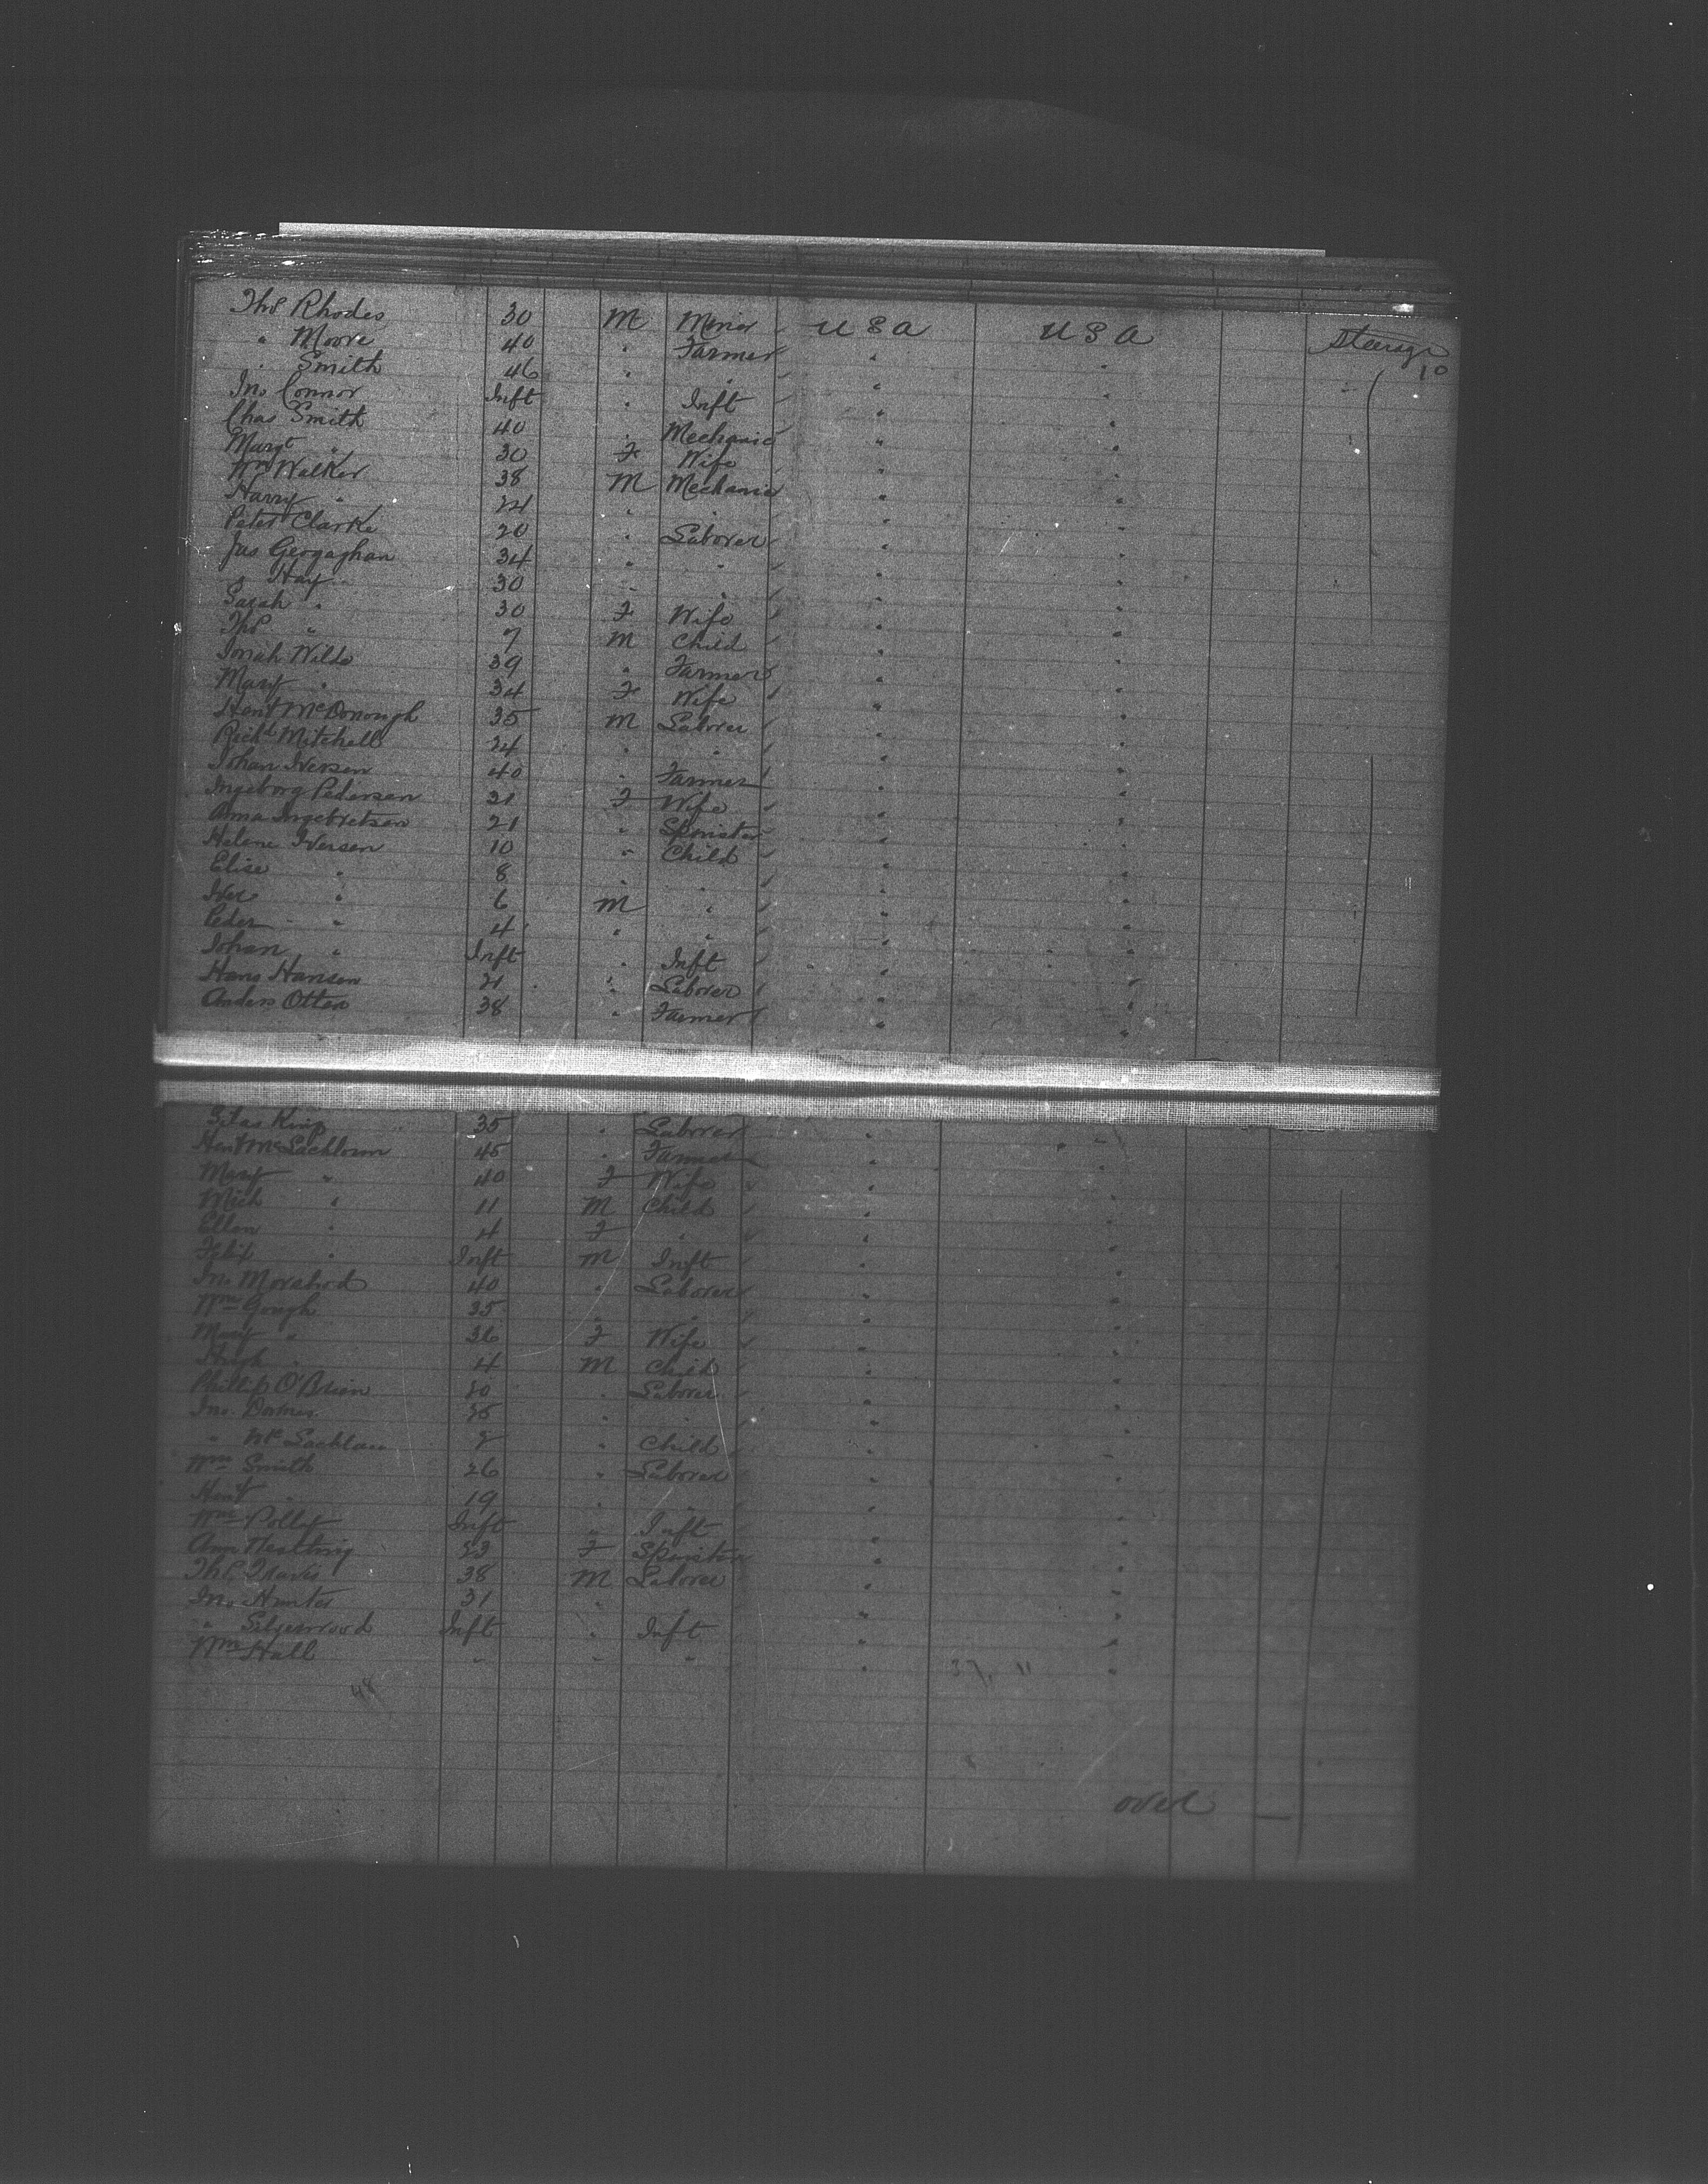 Thos Rhodes 30 M Miner U S A U S A Steerage
" Moore 40 " Farmer " " 10
" Smith 46 " " " "
Jno Connor Inft " Inft " "
Chas Smith 40 " Mechanic " "
Margt " 30 F Wife " "
Wm Walker 38 M Mechanic " "
Harry " 24 " " " "
Peter Clarke 20 " Laborer " "
Jas Geogaghan 34 " " " "
" Hay 30 " " " "
Sarah " 30 F Wife " "
Thos " 7 M Child " "
Josiah Wilds 39 " Farmer " "
Mary " 34 F Wife " "
Heny McDonough 35 M Laborer " "
Richd Mitchell 24 " " " "
Johan Iversen 40 " Farmer " "
Ingeborg Pedersen 31 F Wife " "
Anna Ingebretsen 21 " Spinster " "
Helene Iversen 10 " Child " "
Elise " 8 " " " "
Iver " 6 M " " "
Peder " 4 " " " "
Johan " Inft " Inft " "
Hans Hansen 21 " Laborer " "
Anders Otten 38 " Farmer " "
Silas King 35 " Laborer " "
Heny McLachlown 45 " Farmer " "
Mary " 40 F Wife " "
Mich " 11 M Child " "
Ellen " 4 F " " "
Felix " Inft M Inft " "
Jno 40 " Laborer " "
Wm Gough 35 " " " "
Mary " 36 F Wife " "
Hugh " 4 M Child " "
Phillip O'Brien 20 " Laborer " "
Jno " " " "
" McLachlan " Child " "
Wm Smith 26 " Laborer " "
Heny " 19 " " " "
Wm Inft " Inft " "
Ann 23 F Spinster " "
Thos Travis 38 M Laborer " "
Jno Hunter 31 " " " "
" Inft " Inft " "
Wm Hall " " " " "
48 37. 11
over